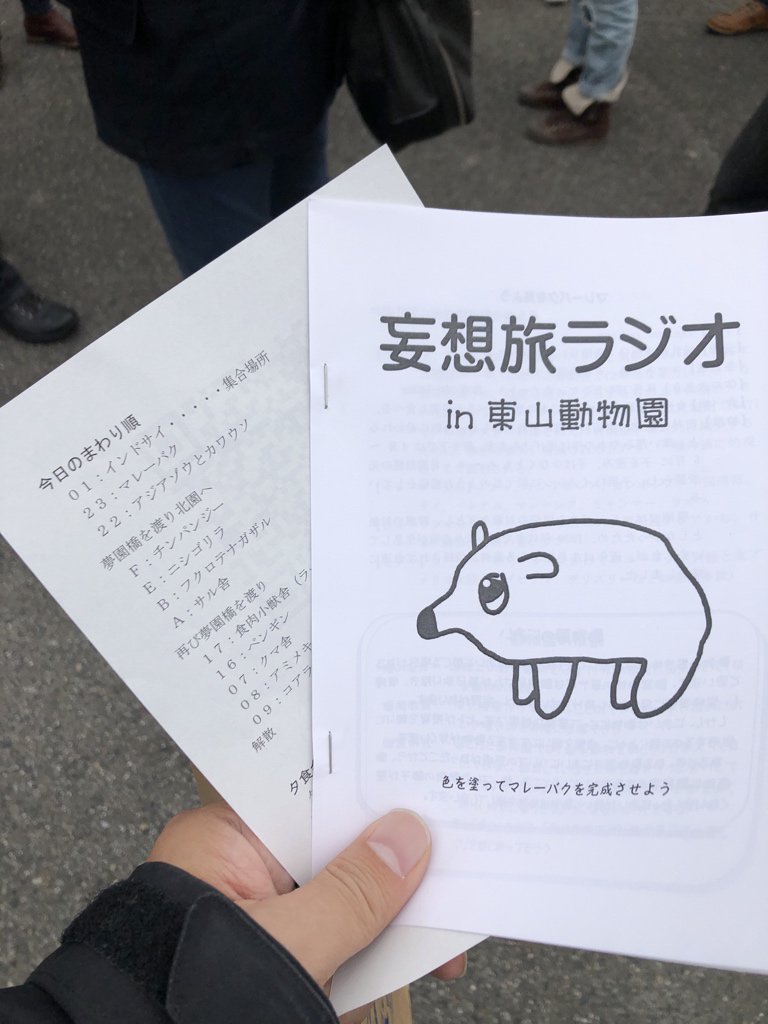 今日のまわり順
01：インドサイ・・・・・集合場所
23：マレーバク
22：アジアゾウとカワウソ
夢園橋を渡り北園へ
F：チンパンジー
E：ニシゴリラ
B：フクロテナガザル
A：サル舎
再び夢園橋を渡り
17：食肉小獣舎（ラ
16：ペンギン
07：クマ舎
08：アミメキ
09：コアラ
解散
夕食
妄想旅ラジオ
in 東山動物園
色を塗ってマレーバクを完成させよう